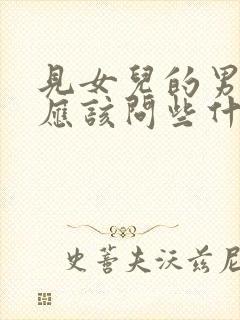 見女兒的男
應該問些什
史蒈夫沃兹尼